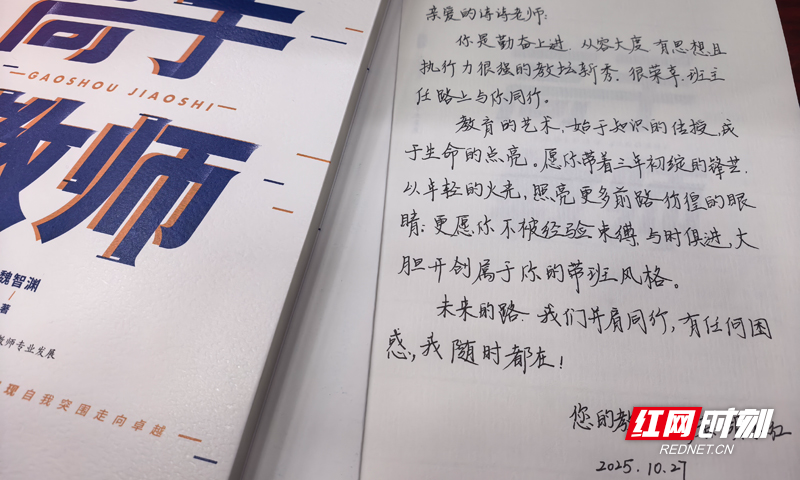 高手
GAOSHOU JIAOSHI
教师
魏智渊
著
教师专业发展
现自我突围走向卓越
亲爱的诗诗老师:
你是勤奋上进、从容大度、有思想且
执行力很强的教坛新秀,很荣幸,班主
任路上与你同行。
教育的艺术,始于知识的传授,成
于生命的点亮。愿你带着三年初绽的锋芒,
以年轻的火光,照亮更多前路彷徨的眼
睛;更愿你不被经验束缚,与时俱进,大
胆开创属于你的带班风格。
未来的路,我们并肩同行,有任何困
惑,我随时都在!
您的教
红
2025.10.27
红网时刻
REDNET.CN